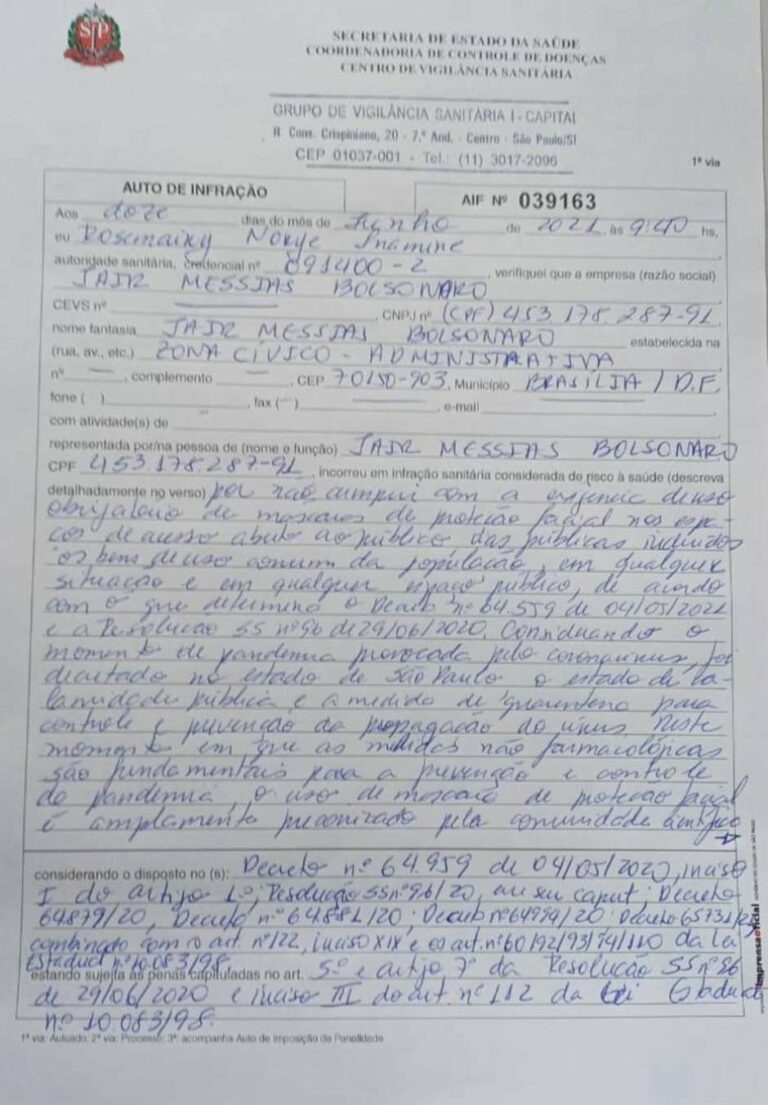 SP
SECRETARIA DE ESTADO DA SAÚDE
COORDENADORIA DE CONTROLE DE DOENÇAS
CENTRO DE VIGILÂNCIA SANITÁRIA
GRUPO DE VIGILÂNCIA SANITÁRIA I - CAPITAL
R Cons. Crispiniano, 20 - 7.º And. - Centro - São Paulo/SP
CEP 01037-001 - Tel.: (11) 3017-2096
1ª via
AUTO DE INFRAÇÃO
AIF Nº 039163
Aos doze dias do mês de Junho de 2021, às 9:40 hs,
eu Rosemairy Norye Inamine
autoridade sanitária, credencial nº 891400-2, verifiquei que a empresa (razão social)
JAIR MESSIAS BOLSONARO
CEVS nº CNPJ nº (CPF) 453 178.287-91
nome fantasia JAIR MESSIAS BOLSONARO estabelecida na
(rua, av., etc.) ZONA CÍVICO - ADMINISTRATIVA
nº —, complemento —, CEP 70150-903, Município BRASÍLIA / D.F.
fone ( ) , fax (—) , e-mail
com atividade(s) de
representada por/na pessoa de (nome e função) JAIR MESSIAS BOLSONARO
CPF 453.178.287-91, incorreu em infração sanitária considerada de risco à saúde (descreva
detalhadamente no verso) por não cumprir com a exigência de uso
obrigatório de máscaras de proteção facial nos espa-
ços de acesso aberto ao público, das públicas incluidos
os bens de uso comum da população, em qualquer
situação e em qualquer espaço público, de acordo
com o que determina o Decreto nº 64.559 de 04/05/2021
e a Resolução SS nº 96 de 29/06/2020. Considerando o
momento de pandemia provocada pelo coronavírus, foi
decretado no estado de São Paulo o estado de ca-
lamidade pública e a medida de quarentena para
controle e prevenção da propagação do vírus neste
momento em que as medidas não farmacológicas
são fundamentais para a prevenção e controle
da pandemia, o uso de máscara de proteção facial
é amplamente preconizado pela comunidade científica
considerando o disposto no (s): Decreto nº 64.959 de 04/05/2020, inciso
I do artigo 1º, Resolução SS nº 96/20, em seu caput; Decreto
64879/20, Decreto nº 64.881/20; Decreto nº 64994/20; Decreto 65731/21
combinado com o art. nº 122, inciso XIX e os art. nº 60/92/93/94/110 da Lei
Estadual nº 10.083/98.
estando sujeita às penas capituladas no art. 5º e artigo 7º da Resolução SS nº 96
de 29/06/2020 e inciso III do art. nº 112 da Lei Estadual
nº 10.083/98.
1ª via: Autuado; 2ª via: Processo; 3ª: acompanha Auto de Imposição de Penalidade
imprensaoficial